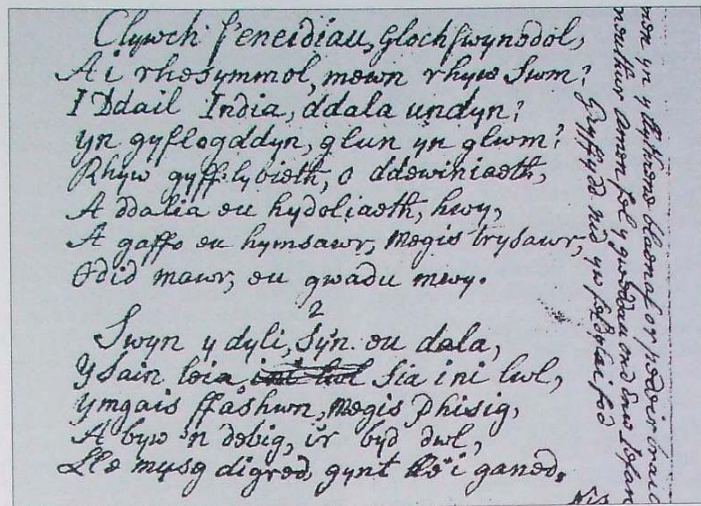 Clywch feneidiau, glochswynodol,
A i rhesymmol, mewn rhyw Swm?
I Ddail India, ddala undyn?
yn gyflogddyn, glun yn glwm?
Rhyw gyffelybieth, o ddewiniaeth,
A ddalia eu hydoliaeth, hwy,
A gaffo eu hymsawr, megis trysawr,
Odid mawr, eu gwadu mwy.
2
Swyn y dyli, Sy'n eu dala,
Y Sain leia Sia ini lwl,
ymgais ffashwn, megis Phisig,
A byw 'n debig, i'r byd dwl,
Lle mysg digred gynt i ganed.
Nis
yn y blaenaf or pedair
amen fel y gweddau ond enw Iefan
Gryffydd nid yw fod